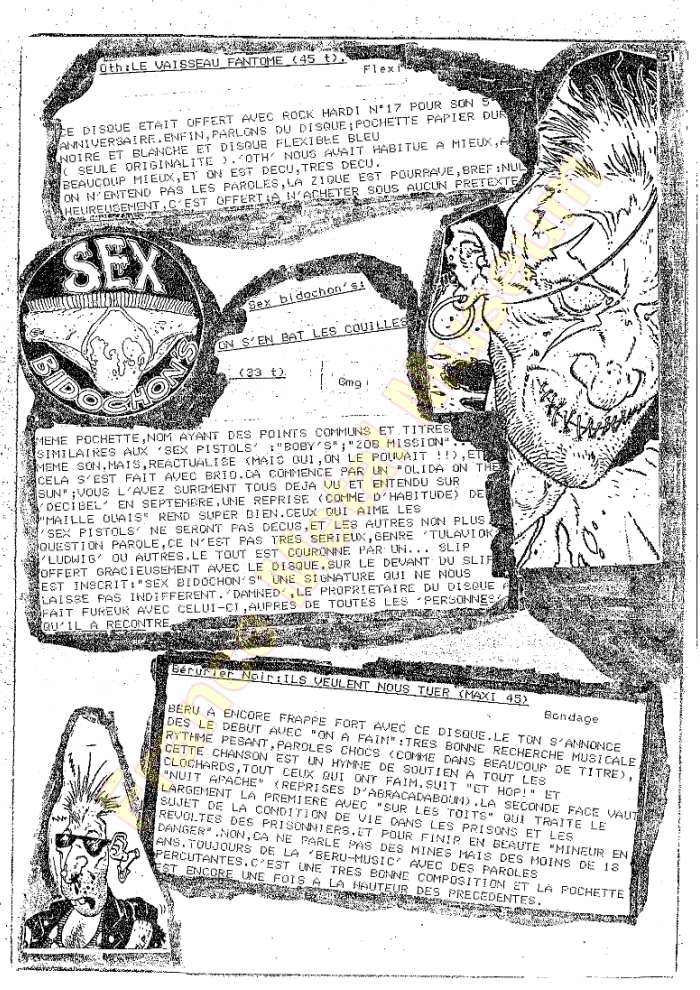 31
Oth:LE VAISSEAU FANTOME (45 t).
Flexi
CE DISQUE ETAIT OFFERT AVEC ROCK HARDI N°17 POUR SON 5
ANNIVERSAIRE.ENFIN,PARLONS DU DISQUE;POCHETTE PAPIER DUR
NOIRE ET BLANCHE ET DISQUE FLEXIBLE BLEU
( SEULE ORIGINALITE ).'OTH' NOUS AVAIT HABITUE A MIEUX,A
BEAUCOUP MIEUX,ET ON EST DECU,TRES DECU.
ON N'ENTEND PAS LES PAROLES,LA ZIQUE EST POURRAVE,BREF:NUL
HEUREUSEMENT,C'EST OFFERT;A N'ACHETER SOUS AUCUN PRETEXTE
SEX
BIDOCHON'S
Sex bidochon's:
ON S'EN BAT LES COUILLES
(33 t)
Gmg
MEME POCHETTE,NOM AYANT DES POINTS COMMUNS ET TITRES
SIMILAIRES AUX 'SEX PISTOLS' :"BOBY'S";"ZOB MISSION"
MEME SON.MAIS,REACTUALISE (MAIS OUI,ON LE POUVAIT !!),ET
CELA S'EST FAIT AVEC BRIO.CA COMMENCE PAR UN "OLIDA ON THE
SUN";VOUS L'AVEZ SUREMENT TOUS DEJA VU ET ENTENDU SUR
'DECIBEL' EN SEPTEMBRE.UNE REPRISE (COMME D'HABITUDE) DE
"MAILLE OUAIS" REND SUPER BIEN.CEUX QUI AIME LES
'SEX PISTOLS' NE SERONT PAS DECUS,ET LES AUTRES NON PLUS
QUESTION PAROLE,CE N'EST PAS TRES SERIEUX,GENRE 'TULAVIOK'
'LUDWIG' OU AUTRES.LE TOUT EST COURONNE PAR UN... SLIP
OFFERT GRACIEUSEMENT AVEC LE DISQUE.SUR LE DEVANT DU SLIP
EST INSCRIT:"SEX BIDOCHON'S" UNE SIGNATURE QUI NE NOUS
LAISSE PAS INDIFFERENT.'DAMNED',LE PROPRIETAIRE DU DISQUE A
FAIT FUREUR AVEC CELUI-CI,AUPRES DE TOUTES LES 'PERSONNES'
QU'IL A RECONTRE
Bérurier Noir:ILS VEULENT NOUS TUER (MAXI 45)
Bondage
BERU A ENCORE FRAPPE FORT AVEC CE DISQUE.LE TON S'ANNONCE
DES LE DEBUT AVEC "ON A FAIM":TRES BONNE RECHERCHE MUSICALE
RYTHME PESANT,PAROLES CHOCS (COMME DANS BEAUCOUP DE TITRE),
CETTE CHANSON EST UN HYMNE DE SOUTIEN A TOUT LES
CLOCHARDS,TOUT CEUX QUI ONT FAIM.SUIT "ET HOP!" ET
"NUIT APACHE" (REPRISES D'ABRACADABOUM).LA SECONDE FACE VAUT
LARGEMENT LA PREMIERE AVEC "SUR LES TOITS" QUI TRAITE LE
SUJET DE LA CONDITION DE VIE DANS LES PRISONS ET LES
REVOLTES DES PRISONNIERS.ET POUR FINIR EN BEAUTE "MINEUR EN
DANGER".NON,CA NE PARLE PAS DES MINES MAIS DES MOINS DE 18
ANS.TOUJOURS DE LA 'BERU-MUSIC' AVEC DES PAROLES
PERCUTANTES.C'EST UNE TRES BONNE COMPOSITION ET LA POCHETTE
EST ENCORE UNE FOIS A LA HAUTEUR DES PRECEDENTES.
Museum